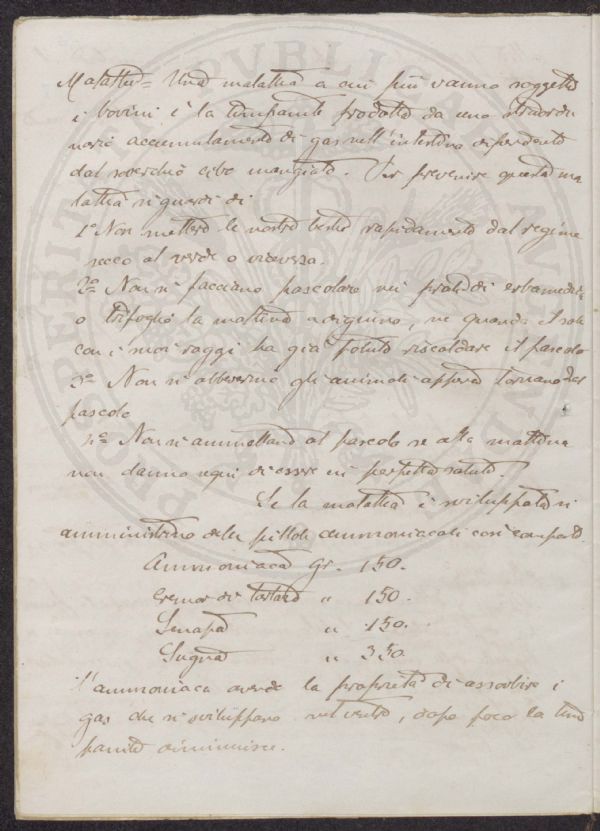 Malattie = Una malattia a cui più vanno soggetti
i bovini è la timpanite prodotta da uno straordi
nario accumulamento di gas nell'intestino dipendente
dal soverchio cibo mangiato. Per prevenire questa ma
lattia si guardi di
1° Non mettere le nostre bestie rapidamente dal regime
secco al verde o viceversa.
2° Non si facciano pascolare nei prati di erbamedica
o trifoglio la mattina a digiuno, ne quando il sole
con i suoi raggi ha già potuto riscaldare il pascolo
3° Non si abbeverino gli animali appena tornano dal
pascolo
4° Non si ammettano al pascolo se alla mattina
non danno segni di essere in perfetta salute.
Se la malattia è sviluppata si
amministrino delle pillole ammoniacali così composte.
Ammoniaca Gr. 150.
Cremor di tartaro " 150.
Senapa " 150.
Sugna " 350
L'ammoniaca avendo la proprietà di assorbire i
gas che si sviluppano nel ventre, dopo poco la tim
panite diminuisce.
PUBLICAE